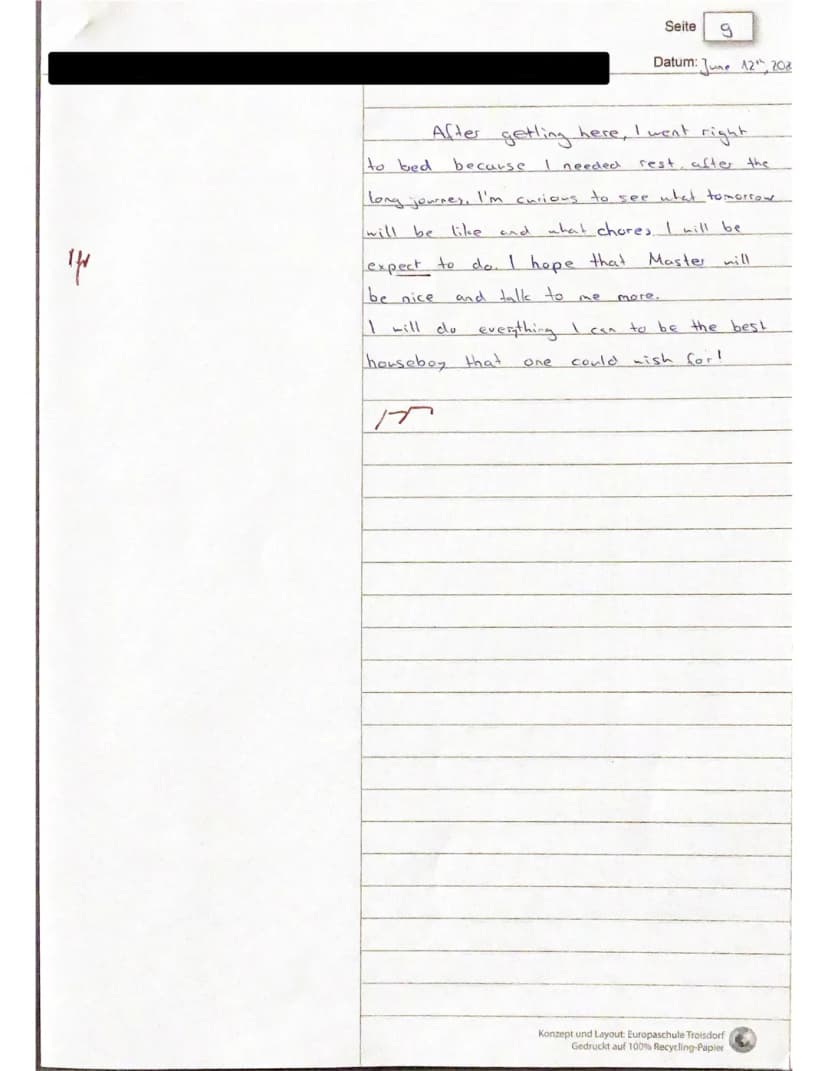 Seite 9
Datum: June 12th, 202
After getting here, I went right
to bed because I needed rest after the
long journey. I'm curious to see what tomorrow
will be like and what chores I will be
expect to do. I hope that Master will
be nice and talk to me more.
I will do everything I can to be the best
houseboy that one could wish for!
Konzept und Layout: Europaschule Troisdorf
Gedruckt auf 100% Recycling-Papier